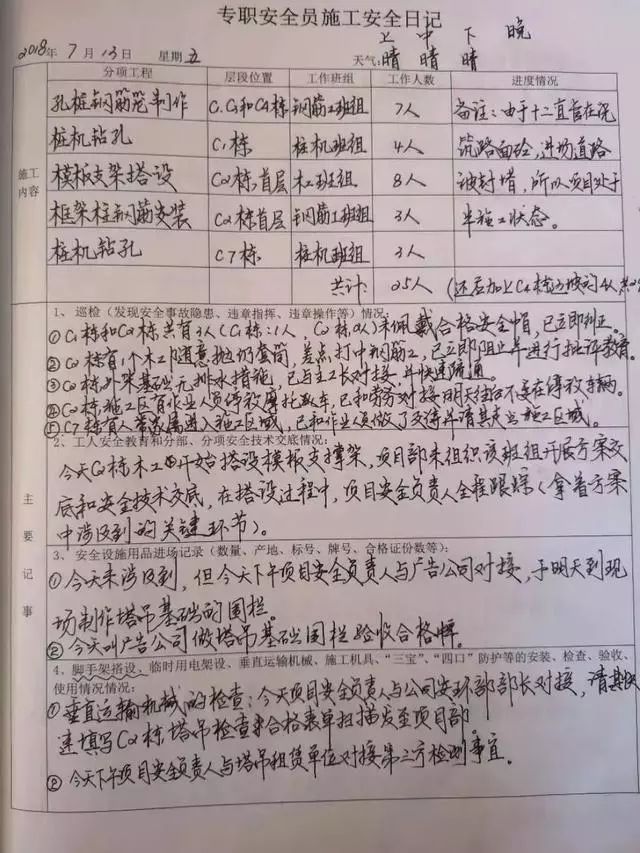 专职安全员施工安全日记
上 中 下 晚
2018年 7月 13日 星期五 天气: 晴 晴 晴
施工内容 分项工程 层段位置 工作班组 工作人数 进度情况
孔桩钢筋笼制作 钢筋工班组 7人 备注:由于十二直管在浇
桩机钻孔 C1栋 桩机班组 4人 筑路面砼,进场道路
模板支架搭设 C2栋首层 木工班组 8人 被封堵,所以项目处于
框架柱钢筋安装 C2栋首层 钢筋工班组 3人 半施工状态。
桩机钻孔 C7栋 桩机班组 3人
共计: 25人
主要记事
1、巡检(发现安全事故隐患、违章指挥、违章操作等)情况:
①C1栋和C2栋共有3人(C1栋:1人,C2栋2人)未佩戴合格安全帽,已立即纠正。
②C2栋有1个木工随意抛扔套筒,差点打中钢筋工,已立即阻止并进行批评教育。
③C2栋外架基础无排水措施,已与主工长对接,并快速疏通。
④C2栋施工区有作业人员停放摩托车,已和劳务对接明天往后不要在停放车辆。
⑤C7栋有人带家属进入施工区域,已和作业人员做了交待并请其走出施工区域。
2、工人安全教育和分部、分项安全技术交底情况:
今天C2栋木工开始搭设模板支撑架,项目部未组织该班组开展方案交
底和安全技术交底,在搭设过程中,项目安全负责人全程跟踪(拿着方案
中涉及到的关键环节)。
3、安全设施用品进场记录(数量、产地、标号、牌号、合格证份数等):
①今天未涉及到,但今天下午项目安全负责人与广告公司对接,于明天到现
场制作塔吊基础的围栏。
②今天叫广告公司做塔吊基础围栏验收合格牌。
4、脚手架搭设、临时用电架设、垂直运输机械、施工机具、“三宝”、“四口”防护等的安装、检查、验收、
使用情况情况:
①垂直运输机械的检查:今天项目安全负责人与公司安环部部长对接,请其快
速填写C2栋塔吊检查合格表单扫描发至项目部。
②今天下午项目安全负责人与塔吊租赁单位对接第三方检测事宜。